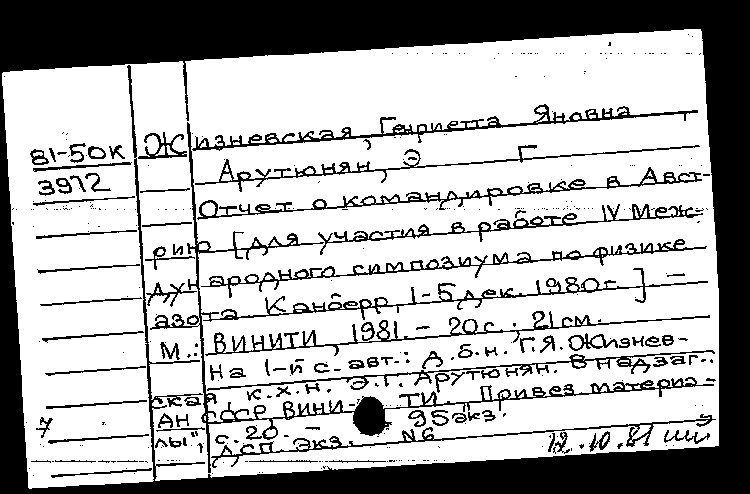 81-50К
3972
Жизневская, Генриетта Яновна,
Арутюнян, Э Г
Отчет о командировке в Авст-
рию [для участия в работе IV Меж-
дународного симпозиума по физике
азота Канберр, 1-5 дек. 1980г.] –
М.: ВИНИТИ, 1981. – 20 с.; 21 см.
На 1-й с. авт.: д.б.н. Г.Я. Жизнев-
ская, к.х.н. Э.Г. Арутюнян. В надзаг.:
АН СССР, ВИНИТИ. "Привез материа-
лы", с. 20. – 95 экз.
ДСП. Экз. N6
7
12.10.81